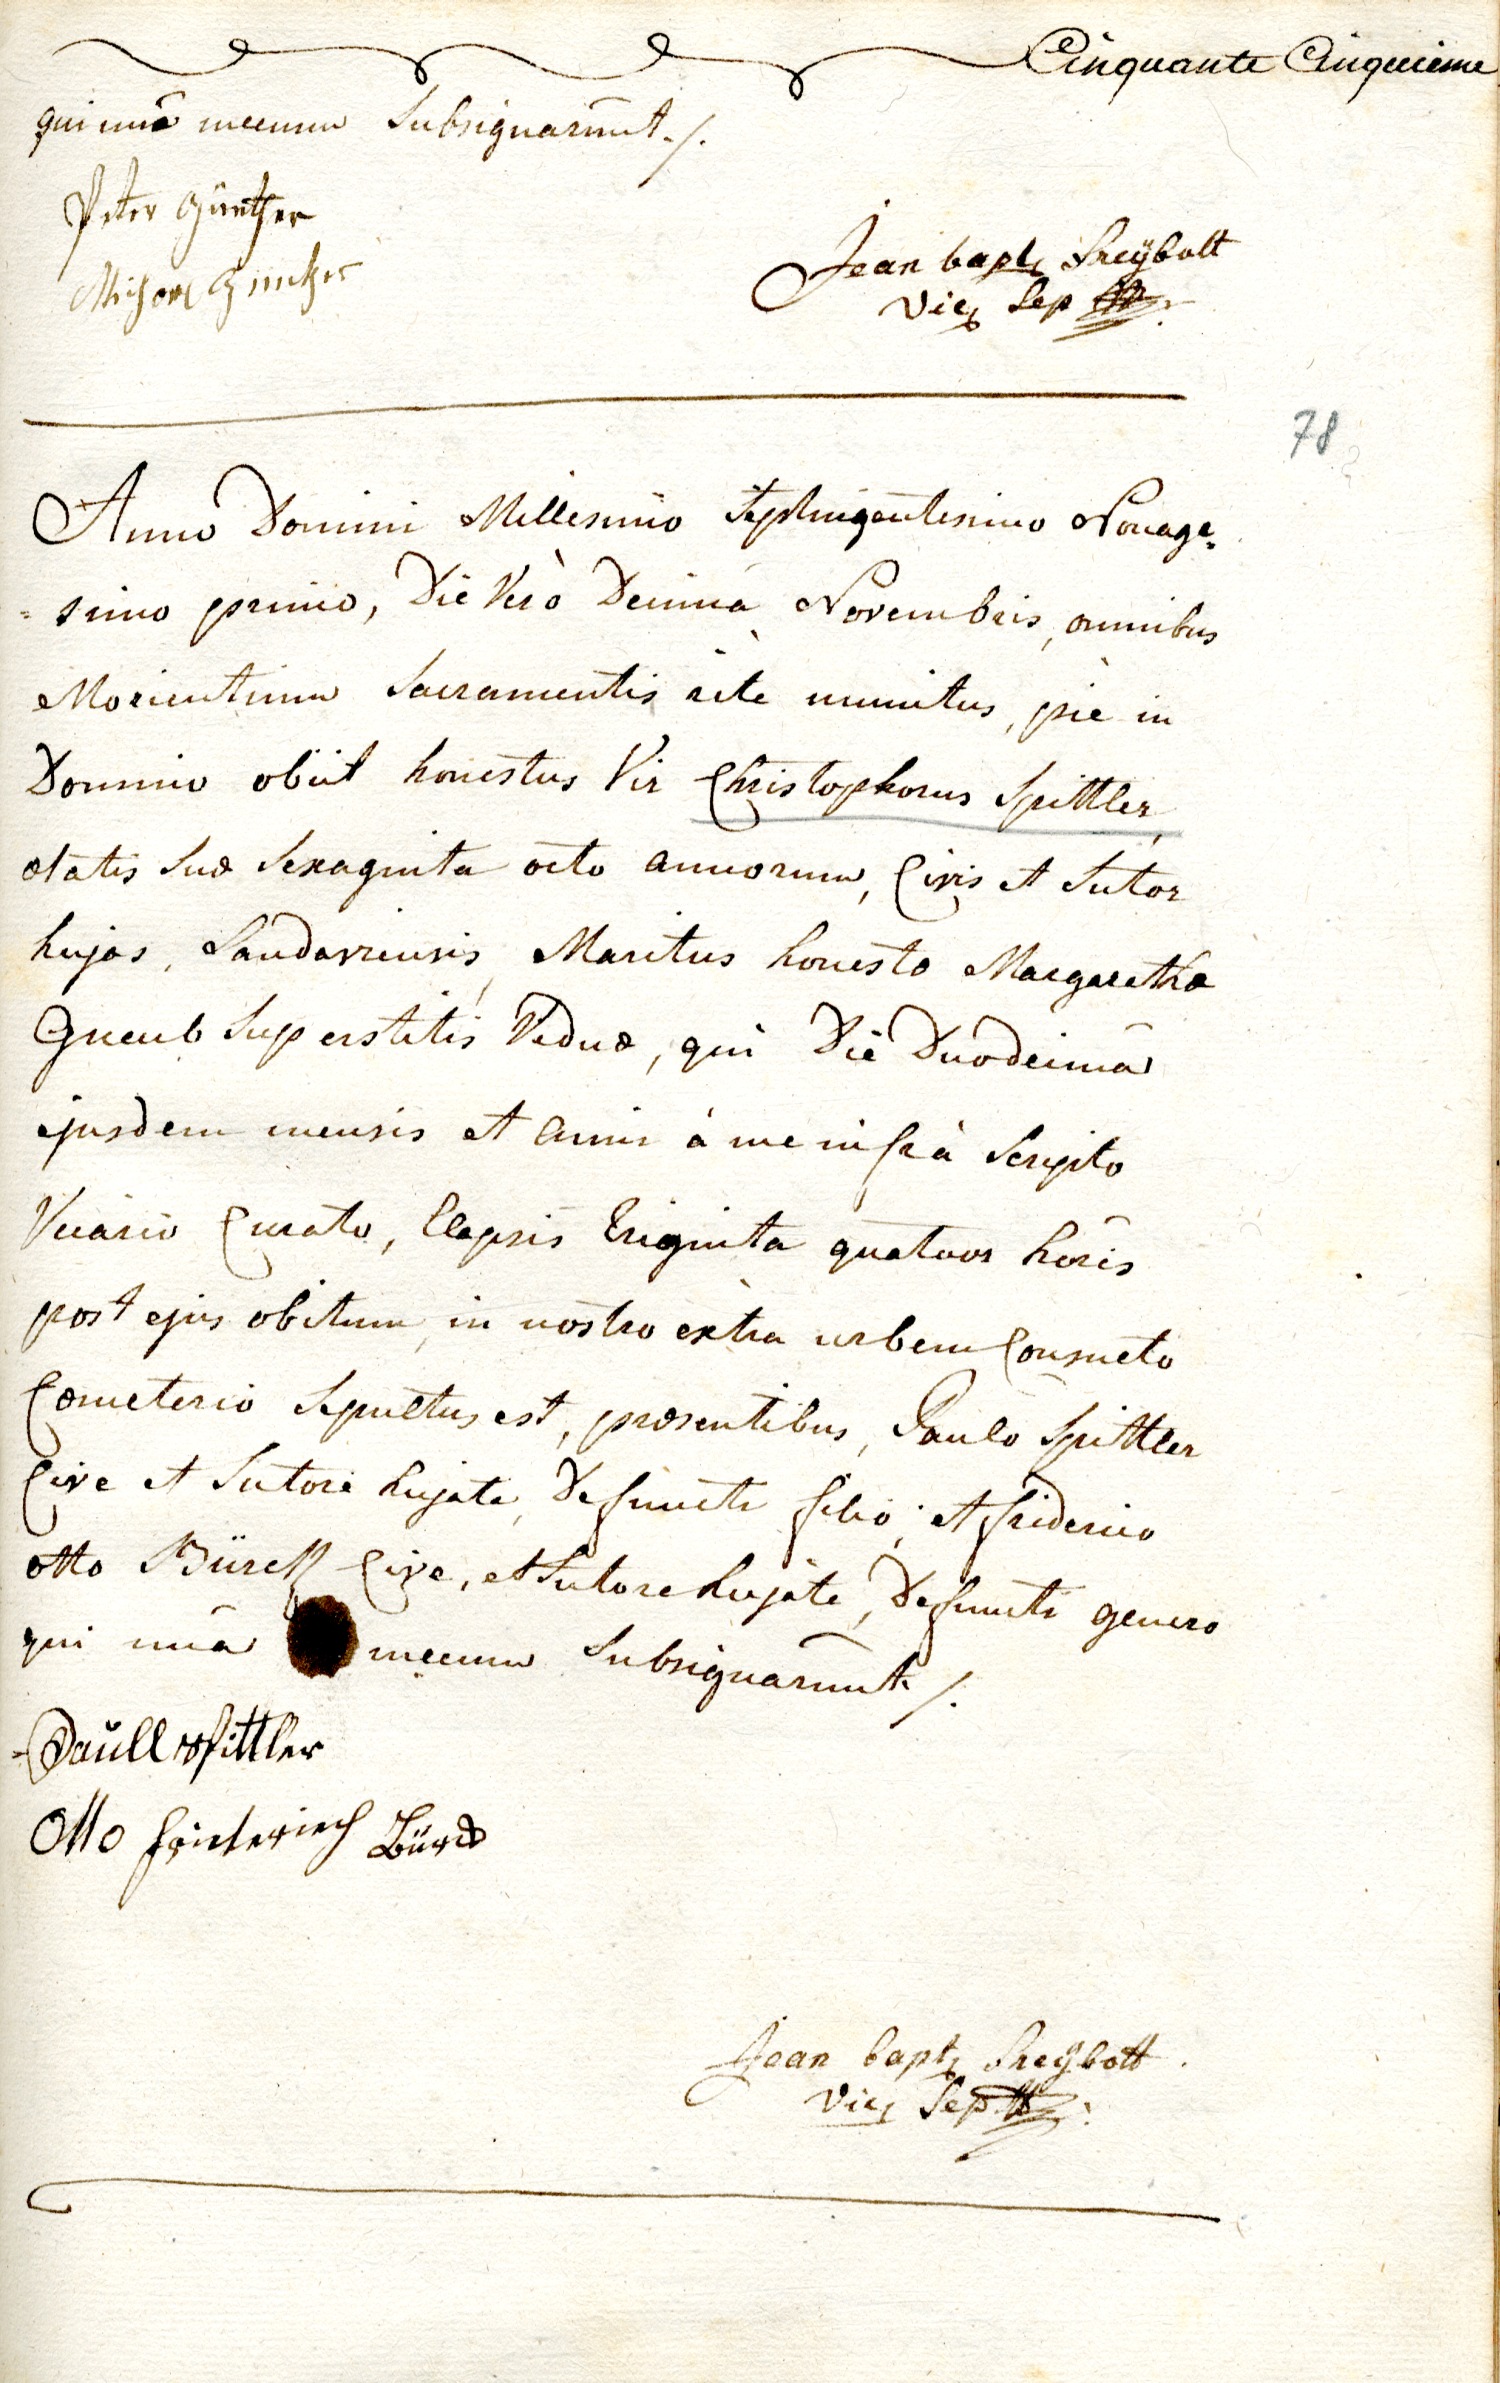 Cinquante Cinquieme
qui unā mecum Subsignarūnt ./.
Peter Günther
Michael Günther
Jean bapt. Freÿbott
vic. Sep
78
Anno Domini Millesimo Septingentesimo Nonage=
=simo primo, Die Verò Decimâ Novembris, omnibus
Morientium Sacramentis ritè munitus, piè in
Domino obiit honestus Vir Christophorus Spittler,
ætatis Suæ Sexaginta octo annorum, Civis et Sutor
hujas, Landaviensis, Maritus honestæ Margarethæ
Superstitis Viduæ, qui Die Duodecimâ
ejusdem mensis et anni à me infrà Scripto
Vicario Curato, Elapsis triginta quatuor horis
post ejus obitum, in nostro extra urbem Consueto
Cœmeterio Sepultus est, præsentibus, Paulo Spittler
Cive et Sutore hujate, Defuncti filio, et friderico
otto Bürck Cive, et Sutore hujate, Defuncti genero
qui unā mecum Subsignarūnt ./.
Paull Spittler
Otto friderich Bürck
Jean bapt. Freÿbott
vic. Sep